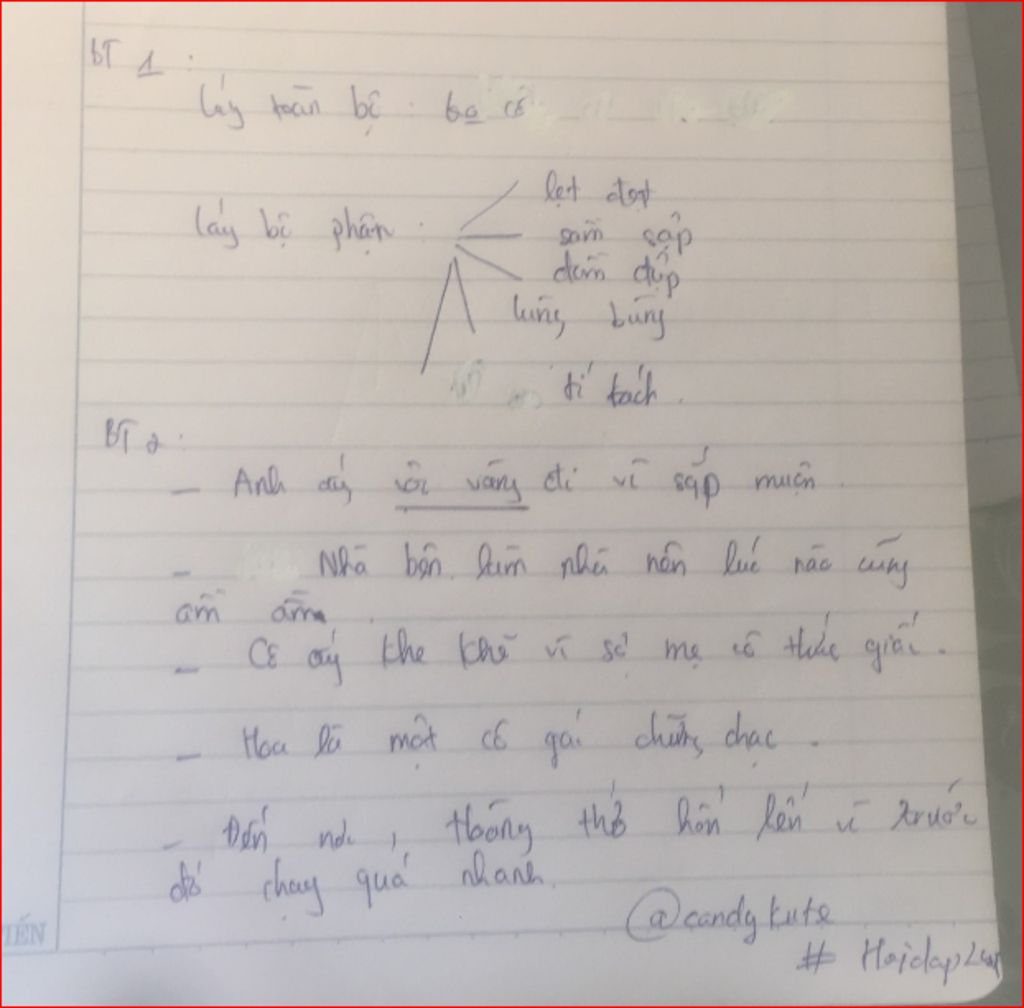 BT 1 :
láy toàn bộ :
láy bộ phận :
lẹt đẹt
sầm sập
đùng
tí tách .
BT 2 :
– Anh ấy vội vàng đi vì sắp muộn .
– Nhà bên làm nhà nên lúc nào cũng
ầm ầm .
– Cô ấy khe khẽ vì sợ mẹ cô thức giấc .
– Hoa là một cô gái chững chạc .
– Đến nơi , Hoàng thở hổn hển vì trước
đó chạy quá nhanh.
@candykute
# Hoidap
TIẾN